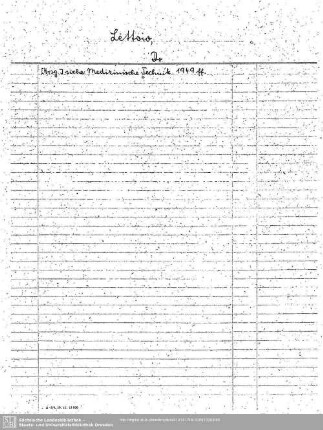 Lettow,
Dr.
Jhrg. I siehe Medizinische Technik 1949 ff.
Sächsische Landesbibliothek -
Staats- und Universitätsbibliothek Dresden